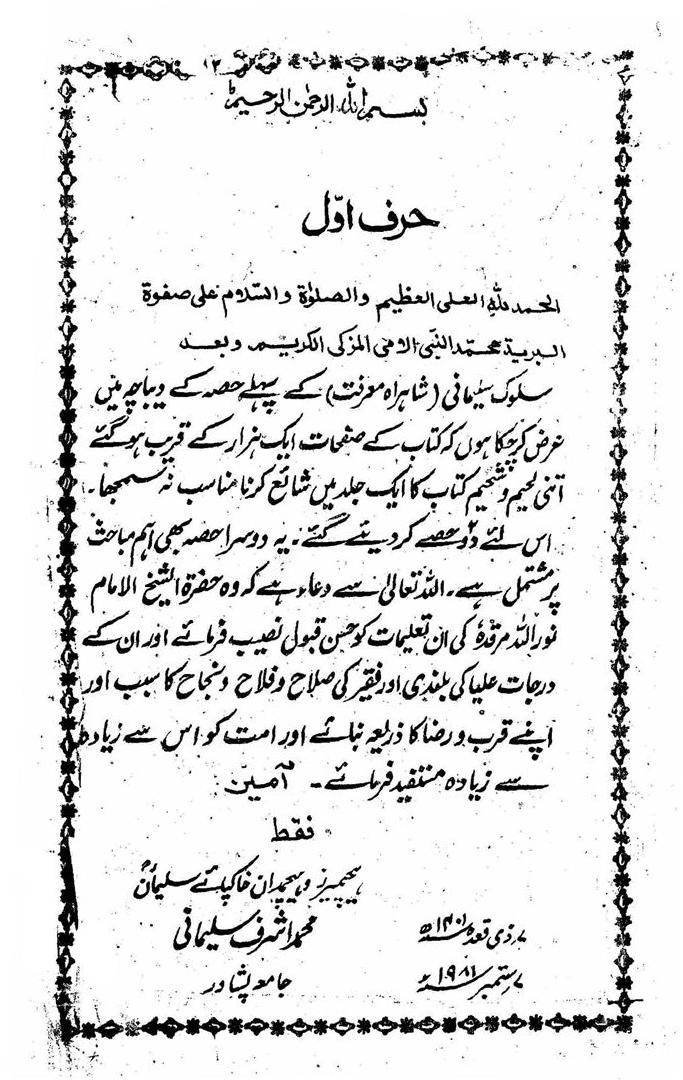 ۱۲
بسم اللہ الرحمن الرحیم
حرف اوّل
الحمد للہ العلی العظیم والصلوٰۃ والسّلام علی صفوۃ
البریۃ محمّد النبیّ الامی المزکی الکریم وبعد
سلوک سلیمانی (شاہراہ معرفت) کے پہلے حصہ کے دیباچہ میں
عرض کرچکا ہوں کہ کتاب کے صفحات ایک ہزار کے قریب ہوگئے
اتنی لحیم و شحیم کتاب کا ایک جلد میں شائع کرنا مناسب نہ سمجھا۔
اس لئے دو حصے کردیئے گئے۔ یہ دوسرا حصہ بھی اہم مباحث
پر مشتمل ہے۔ اللہ تعالیٰ سے دعاء ہے کہ وہ حضرۃ الشیخ الامام
نور اللہ مرقدہٗ کی ان تعلیمات کو حسن قبول نصیب فرمائے اور ان کے
درجات علیا کی بلندی اور فقیر کی صلاح و فلاح و نجاح کا سبب اور
اپنے قرب و رضا کا ذریعہ بنائے اور امت کو اس سے زیادہ
سے زیادہ مستفید فرمائے۔ آمین
فقط
ہیچمیرز و ہیچمدان خاکپائے سلیمانؒ
محمد اشرف سلیمانی
جامعہ پشاور
۷ ذی قعدہ ۱۴۰۱ھ
۷ ستمبر ۱۹۸۱ء